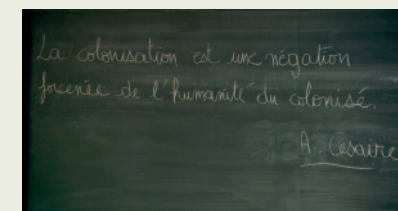 La colonisation est une négation
forcenée de l'humanité du colonisé.
A. Cesaire